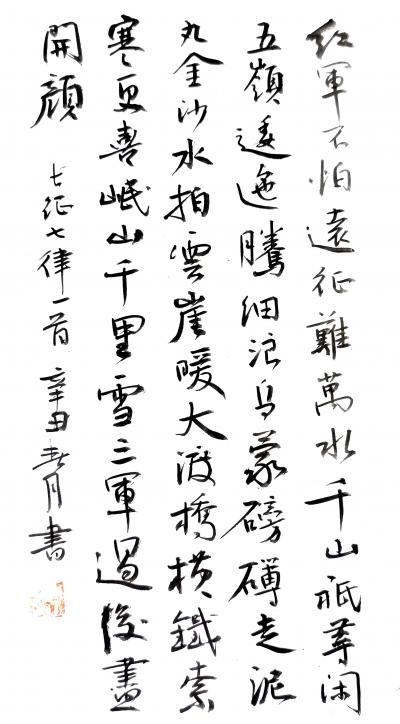 紅軍不怕遠征難萬水千山祗等閑
五嶺逶迤騰細浪烏蒙磅礴走泥
丸金沙水拍雲崖暖大渡橋橫鐵索
寒更喜岷山千里雪三軍過後盡
開顔 長征七律一首 辛丑春月書